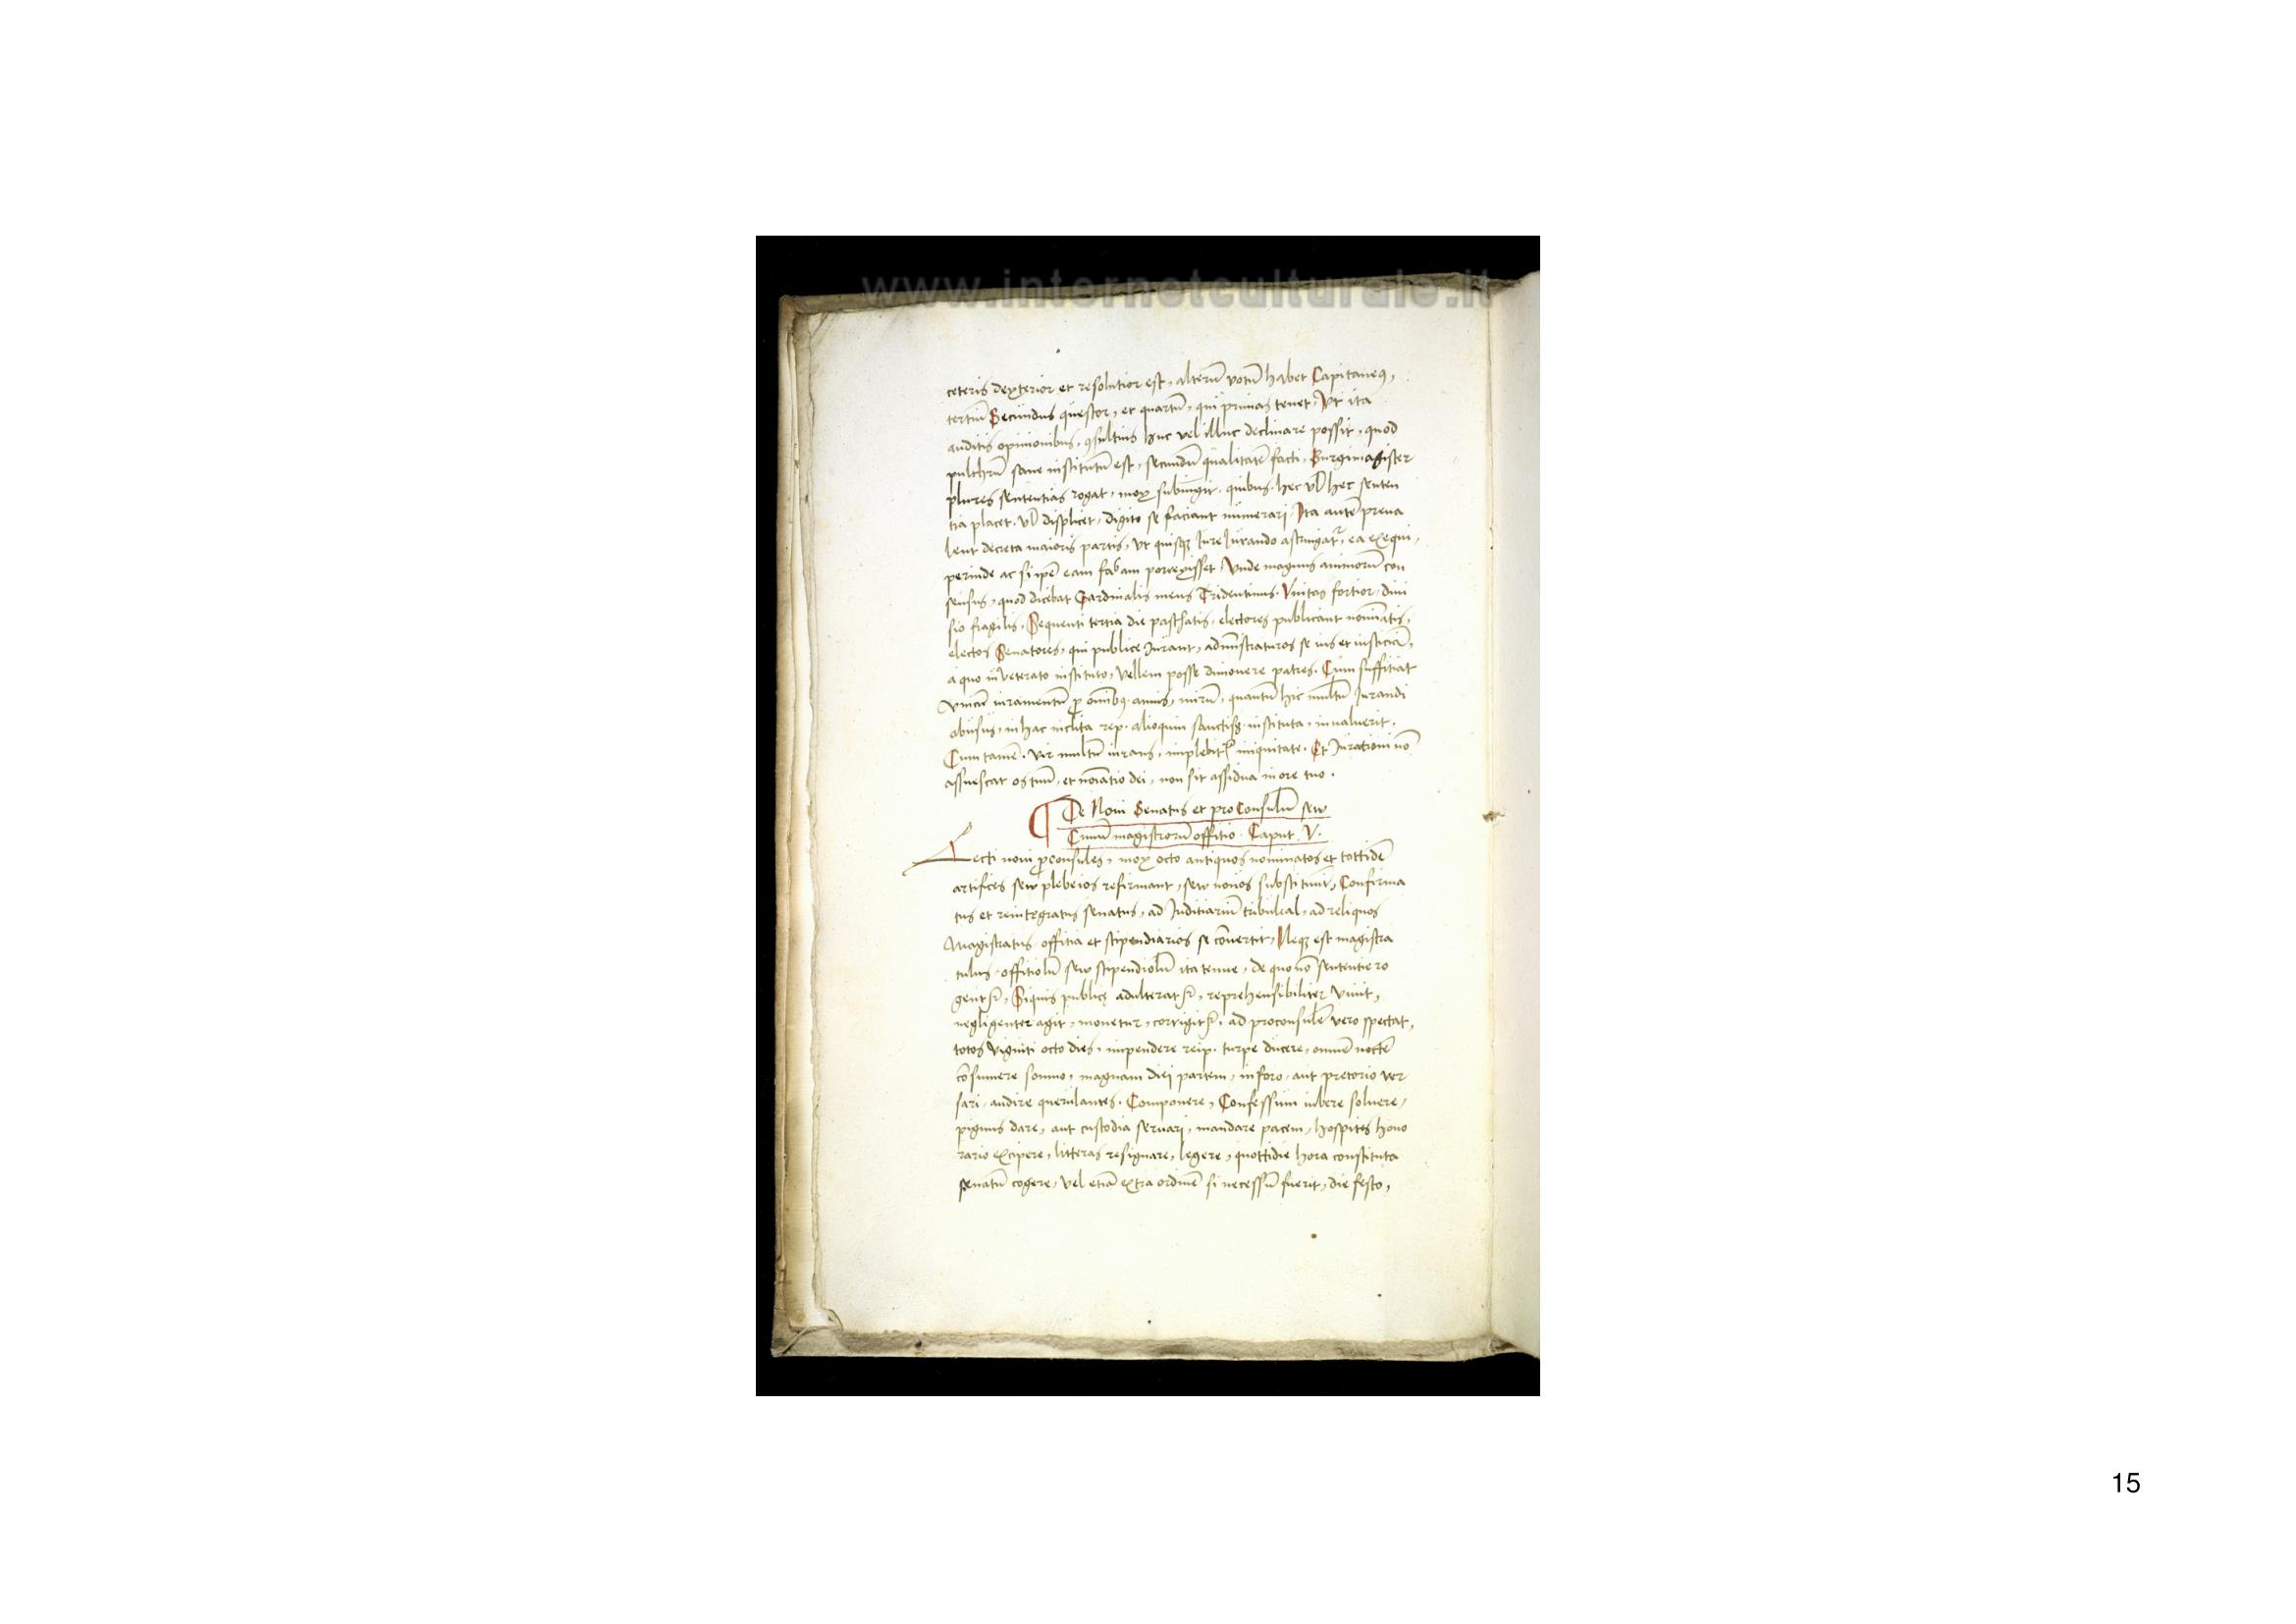 www.internetculturale.it
ceteris dexterior et resolutior est, alterū votū habet Capitaneꝰ,
tertiū Secundus questor, et quartū, qui primas tenet, Vt ita
auditis opinionibus, ꝯsultius huc vel illuc declinare possit, quod
pulchrū sane institutū est, secundū qualitatē facti, Burgimagister
plures sententias rogat, mox subiungit. quibus. hec vl̄ hec senten
tia placet. vl̄ displicet, digito se faciant numerari, Ita autē preua
lent decreta maioris partis, Vt quisqꝫ Iure Iurando astringatʳ, ea exequi,
perinde ac si ipē eam fabam porrexisset, Vnde magnus animorū con
sensus, quod dicebat Cardinalis meus Tridentinus. Vnitas fortior, diui
sio fragilis, Sequenti tertia die paschatis, electores publicant nominatis,
electos Senatores, qui publice Iurant, administraturos se ius et iusticiā,
a quo inveterato instituto, Vellem posse dimouere patres. Cum suffitiat
Vnicū iuramentū ꝓ omnibꝰ annis, mirū, quantū hic multū Iurandi
abusus, in hac inclita rep. alioquin sanctiss. instituta, inualuerit.
Cum tamē. Vir multū iurans, implebitʳ iniquitate. Et Iurationi nō
assuescat os tuū, et noīatio dei, non sit assidua in ore tuo.
De Noui Senatus et proConsulū sew
Ciuiū magistrorū offitio. Caput. V.
Lecti noui ꝓconsules, mox octo antiquos nominatos et tottidē
artifices sew plebeios refirmant, sew nouos substituūt, Confirma
tus et reintegratus senatus, ad Iuditiariū tribunal, ad reliquos
Magistratus, offitia et stipendiarios se cōuertit, Neqꝫ est magistra
tulus, offitiolū sew stipendiolū ita tenue, de quo nō sententie ro
gentʳ, Siquis publicę adulteratʳ, reprehensibiliter viuit,
negligenter agit, monetur, corrigitʳ. ad proconsulē vero spectat,
totos viginti octo dies, impendere reip. turpe ducere, omnē noctē
cōsumere somno, magnam diei partem, in foro, aut pretorio ver
sari, audire querulantes. Componere, Confessum iubere soluere,
pignus dare, aut custodia seruari, mandare pacem, hospites hono
rario excipere, litteras resignare, legere, quottidie hora constituta
senatū cogere, vel etiā extra ordinē si necessū fuerit, die festo,
15